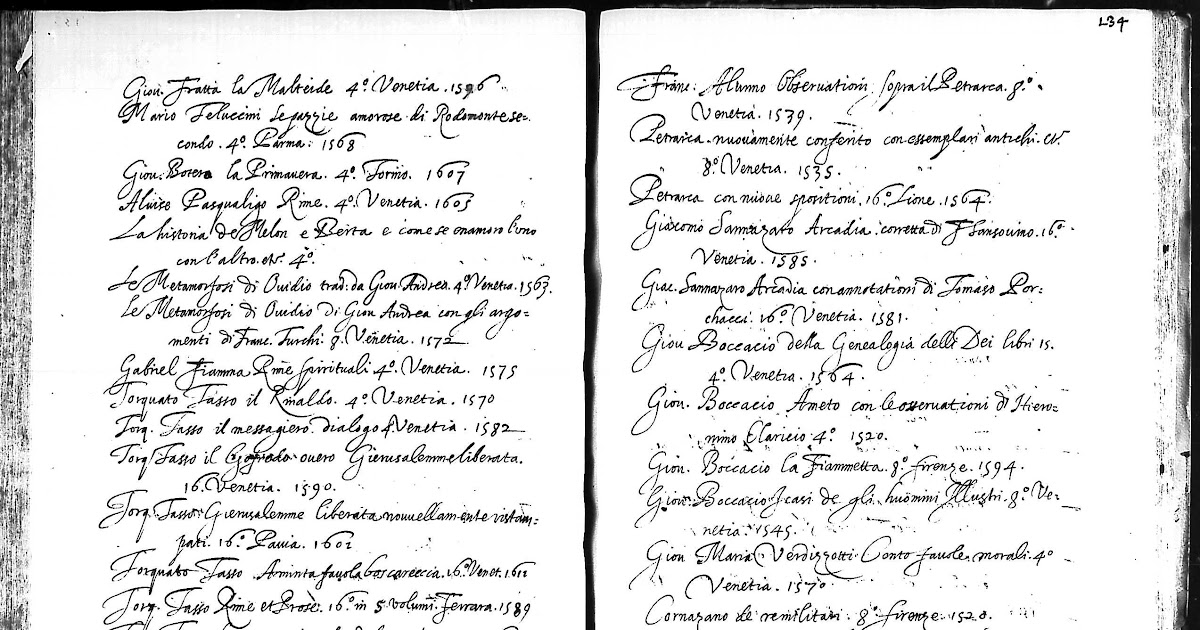 Giou. Fratta la Malteide 4º. Venetia. 1596
Mario Teluccini le pazzie amorose di Rodomonte se-
condo. 4º. Parma: 1568
Giou: Botero la Primauera. 4º. Torino. 1607
Aluise Pasqualigo Rime. 4º. Venetia. 1605
La historia de Melon e Berta e come se enamoro l'uno
con l'altro. etc. 4º.
Le Metamorfosi di Ouidio trad: da Giou. Andrea. 4º Venetia. 1563.
Le Metamorfosi di Ouidio di Giou Andrea con gli argo-
menti di Franc. Turchi. 8. Venetia. 1572
Gabriel Fiamma Rime spirituali 4º. Venetia. 1575
Torquato Tasso il Rinaldo. 4º. Venetia. 1570
Torq. Tasso il messagiero dialogo 4. Venetia. 1582
Torq. Tasso il Gofredo ouero Gierusalemme liberata.
16. Venetia. 1590.
Torq. Tasso: Gierusalemme liberata nouuellamente ristam-
pati. 16.º Pauia. 1602
Torquato Tasso Aminta fauola boscareccia. 16.º Venet. 1612
Torq. Tasso Rime et Prose. 16.º in 5 volumi Ferrara. 1589
L34
Franc: Alunno Obseruationi sopra il Petrarca. 8º.
Venetia. 1539.
Petrarca nuouamente conferito con essemplari antichi. etc.
8º. Venetia. 1535.
Petrarca con nuoue spositioni. 16.º Lione. 1564.
Giacomo Sannazaro Arcadia. corretta di F Sansouino. 16.º
Venetia. 1585.
Giac. Sannazaro Arcadia con annotationi di Tomaso Por-
chacci. 16.º Venetia. 1581.
Giou Boccacio della Genealogia delli Dei libri 15.
4º. Venetia. 1564.
Giou. Boccacio Ameto con le osseruationi di Hiero-
nimo Claricio 4º. 1520.
Giou. Boccacio la Fiammetta. 8.º firenze. 1594.
Giou: Boccacio I casi de gli huomini Illustri. 8.º Ve-
netia. 1545.
Giou Maria Verdizzotti Cento fauole morali. 4º
Venetia. 1570
Cornazano de re militari. 8.º firenze. 1520.